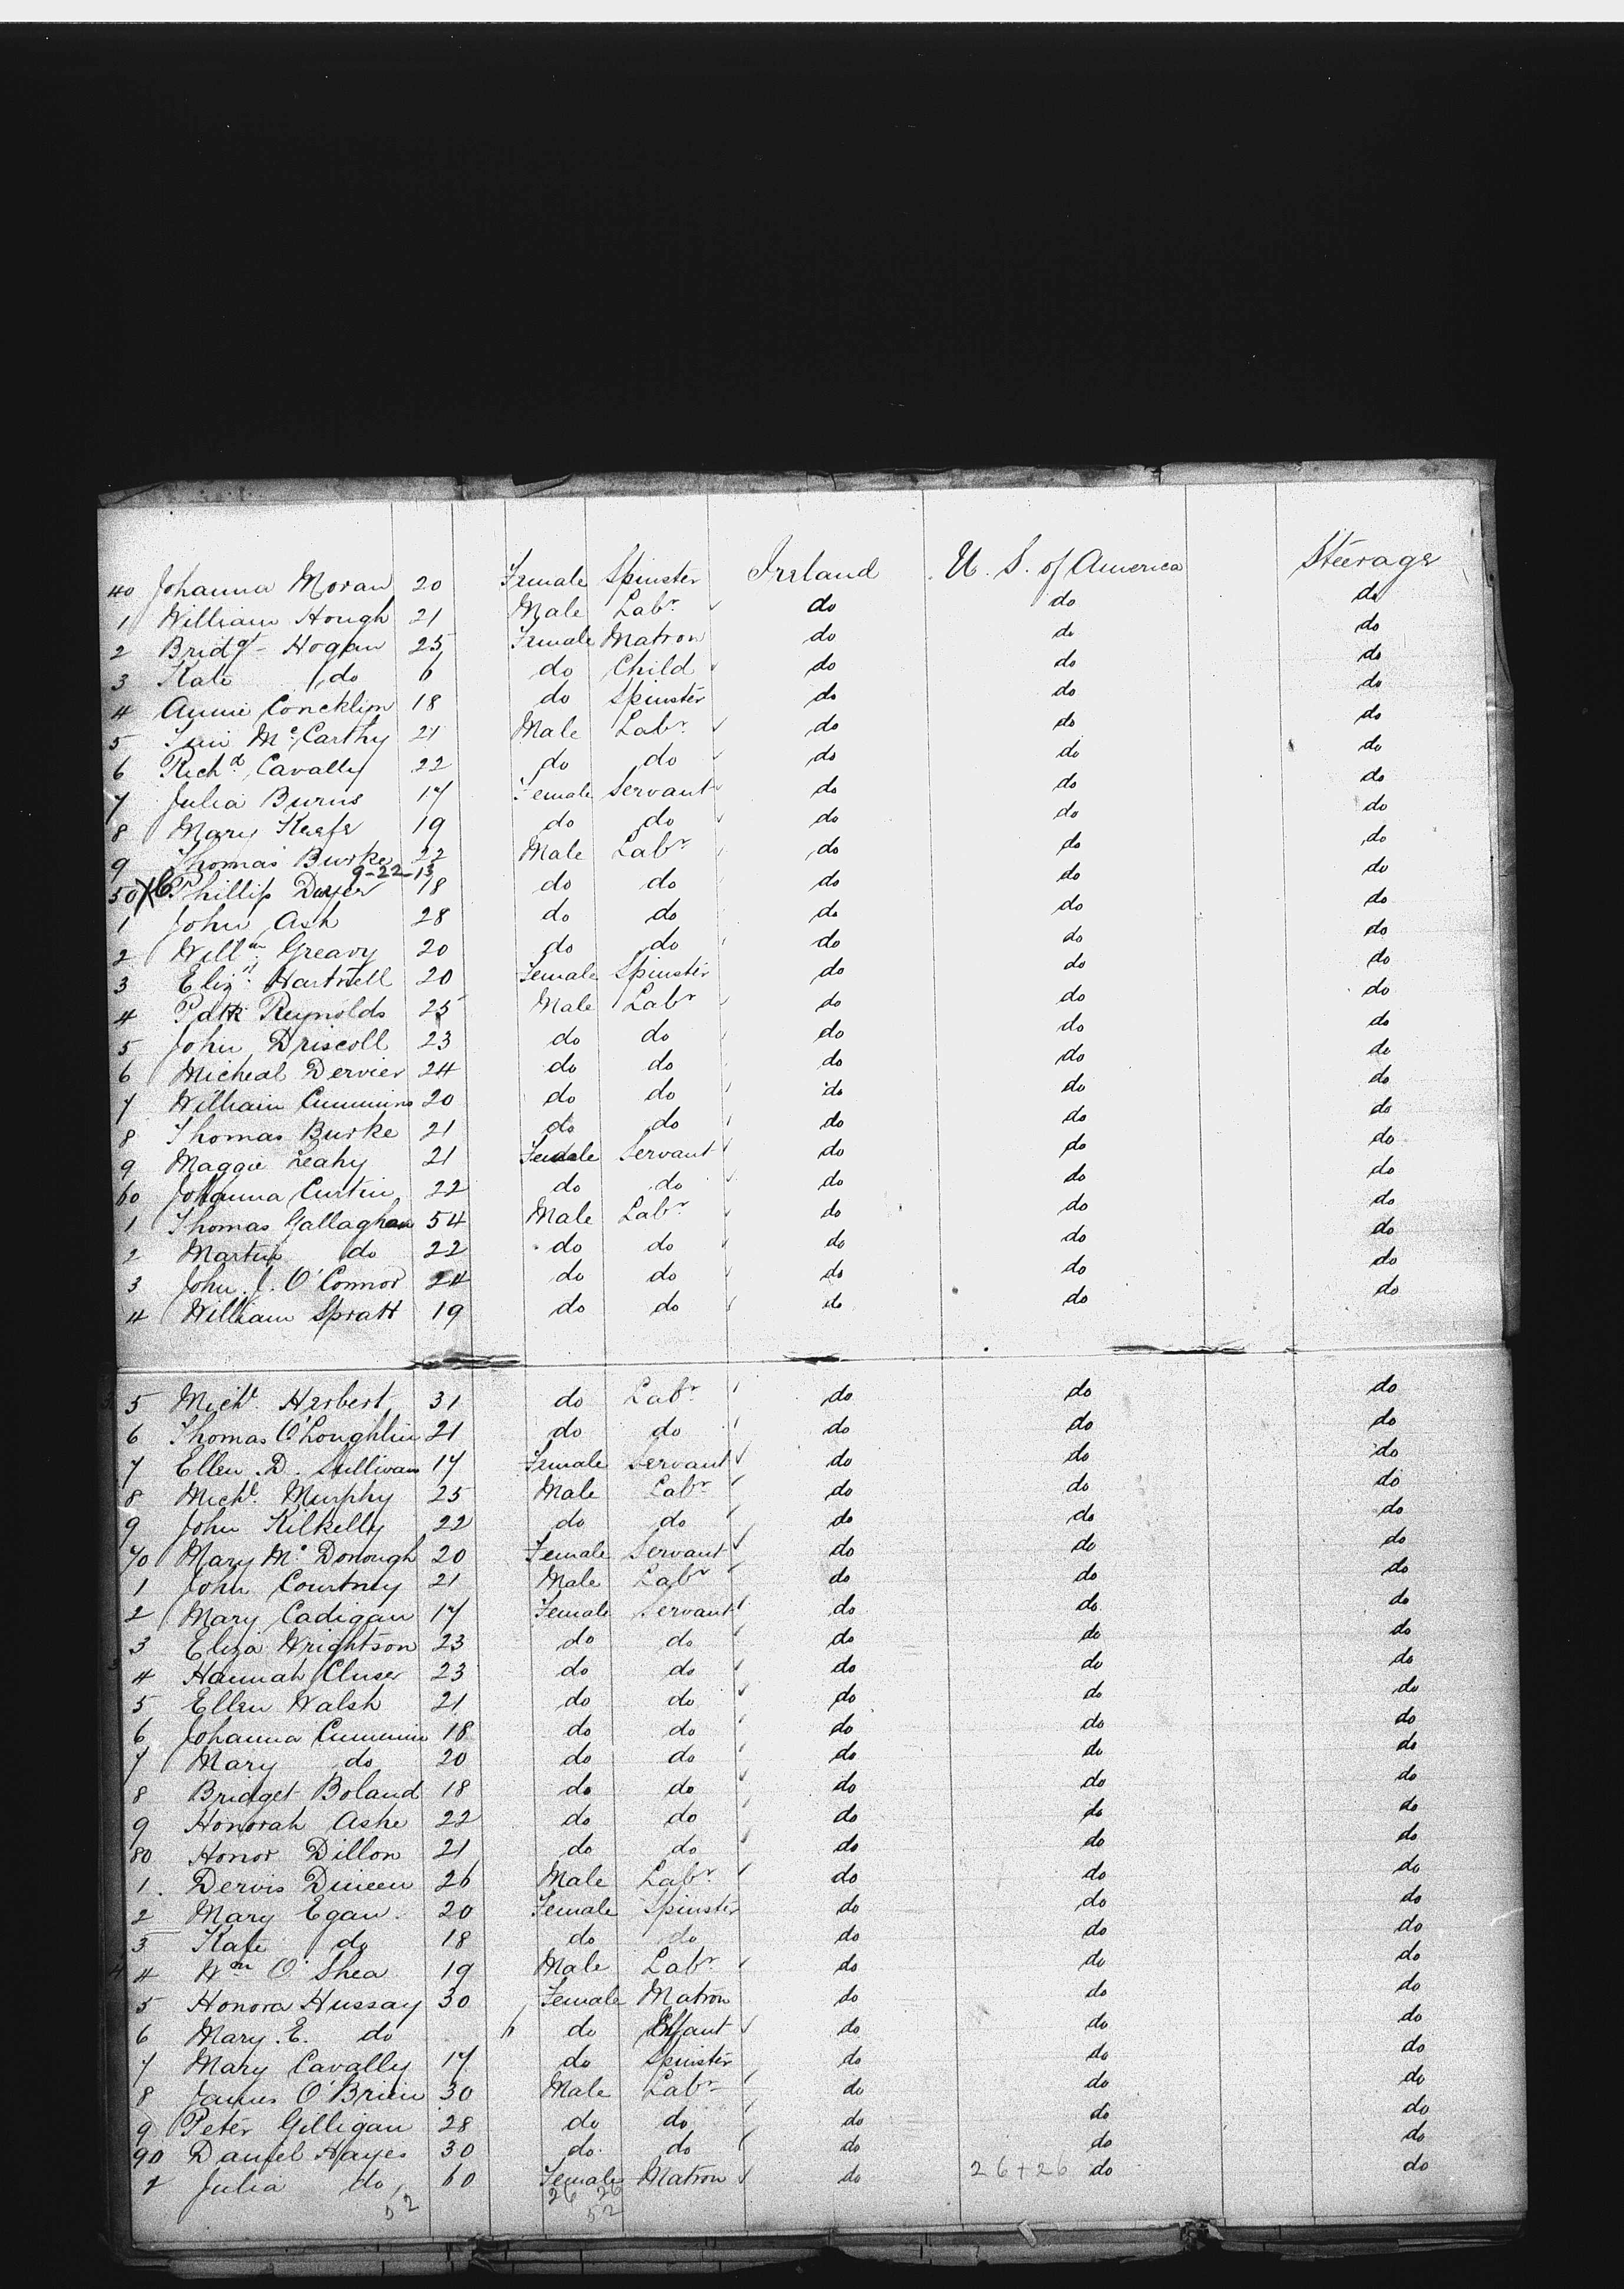 40 Johanna Moran 20 Female Spinster Ireland U. S. of America Steerage
1 William Hough 21 Male Labr do do do
2 Bridgt Hogan 25 Female Matron do do do
3 Kate do 6 do Child do do do
4 Annie Concklin 18 do Spinster do do do
5 Tim McCarthy 21 Male Labr do do do
6 Richd Cavally 22 do do do do do
7 Julia Burns 17 Female Servant do do do
8 Mary Keefe 19 do do do do do
9 Thomas Burke 22 Male Labr do do do
9-22-13
50 Phillip Dwyer 18 do do do do do
1 John Ash 28 do do do do do
2 Willm Greavy 20 do do do do do
3 Elizt Hartnell 20 Female Spinster do do do
4 Patk Reynolds 25 Male Labr do do do
5 John Driscoll 23 do do do do do
6 Micheal Dervier 24 do do do do do
7 William Cummins 20 do do do do do
8 Thomas Burke 21 do do do do do
9 Maggie Leahy 21 Female Servant do do do
60 Johanna Curtin 22 do do do do do
1 Thomas Gallaghan 54 Male Labr do do do
2 Martin do 22 do do do do do
3 John J. O'Connor 24 do do do do do
4 William Spratt 19 do do do do do
5 Michl. Herbert 31 do Labr do do do
6 Thomas O'Loughlin 21 do do do do do
7 Ellen D. Sullivan 17 Female Servant do do do
8 Michl. Murphy 25 Male Labr do do do
9 John Kilkelly 22 do do do do do
70 Mary McDonough 20 Female Servant do do do
1 John Courtney 21 Male Labr do do do
2 Mary Cadigan 17 Female Servant do do do
3 Eliza Wrightson 23 do do do do do
4 Hannah Cluser 23 do do do do do
5 Ellen Walsh 21 do do do do do
6 Johanna Cummin 18 do do do do do
7 Mary do 20 do do do do do
8 Bridget Boland 18 do do do do do
9 Honorah Ashe 22 do do do do do
80 Honor Dillon 21 do do do do do
1. Dervis Dineen 26 Male Labr do do do
2 Mary Egan 20 Female Spinster do do do
3 Kate do 18 do do do do do
4 Wm O'Shea 19 Male Labr do do do
5 Honora Hussay 30 Female Matron do do do
6 Mary. E. do 6 do Infant do do do
7 Mary Cavally 17 do Spinster do do do
8 James O'Brien 30 Male Labr do do do
9 Peter Gilligan 28 do do do do do
90 Daniel Hayes 30 do do do do do
2 Julia do 60 Female Matron do 26+26 do do
52 26 26
52